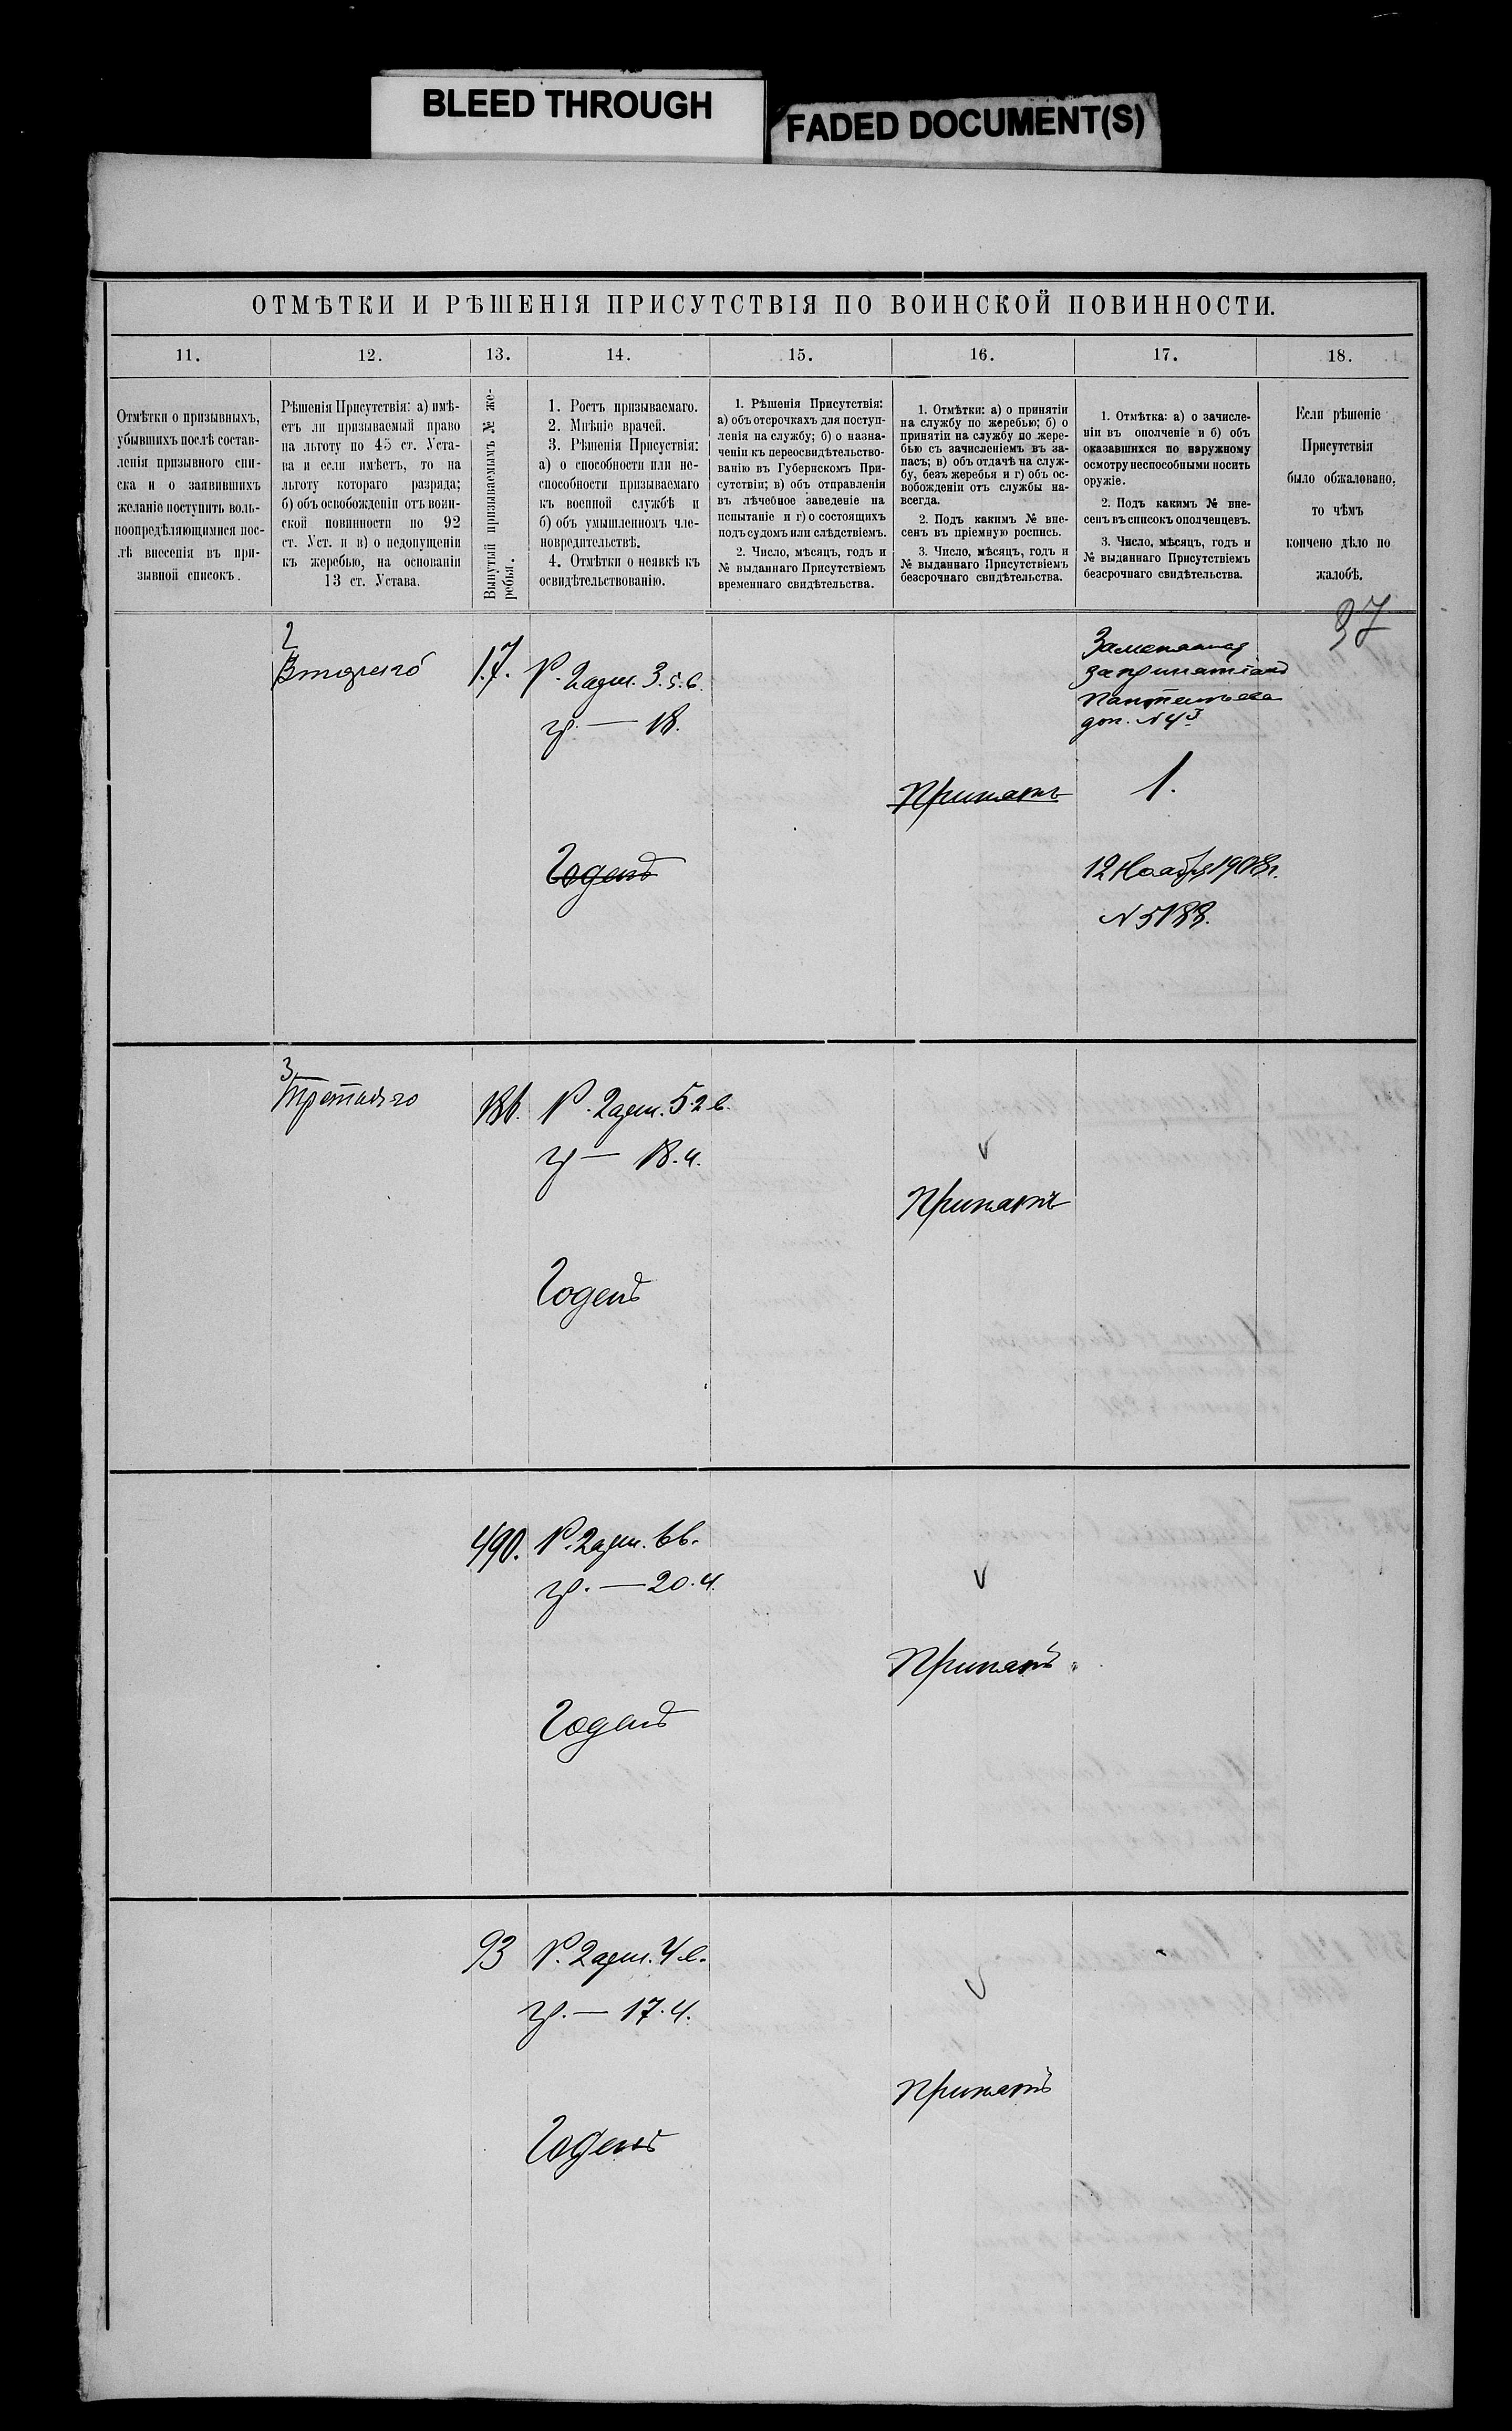 BLEED THROUGH
FADED DOCUMENT(S)
ОТМѢТКИ И РѢШЕНІЯ ПРИСУТСТВІЯ ПО ВОИНСКОЙ ПОВИННОСТИ.
11.
12.
13.
14.
15.
16.
17.
18.
Отмѣтки о призывныхъ,
убывшихъ послѣ состав-
ленія призывного спи-
ска и о заявившихъ
желаніе поступить воль-
ноопредѣляющимися пос-
лѣ внесенія въ при-
зывной списокъ.
Рѣшенія Присутствія: а) имѣ-
етъ ли призываемый право
на льготу по 45 ст. Уста-
ва и если имѣетъ, то на
льготу котораго разряда;
б) объ освобожденіи отъ воин-
ской повинности по 92
ст. Уст. и в) о недопущеніи
къ жеребью, на основаніи
13 ст. Устава.
Вынутый призываемымъ № же-
ребья.
1. Ростъ призываемаго.
2. Мнѣніе врачей.
3. Рѣшенія Присуствія:
а) о способности или не-
способности призываемаго
къ военной службѣ и
б) объ умышленномъ чле-
новредительствѣ.
4. Отмѣтки о неявкѣ къ
освидѣтельствованію.
1. Рѣшенія Присутствія:
а) объ отсрочкахъ для поступ-
ленія на службу; б) о назна-
ченіи къ переосвидѣтельство-
ванію въ Губернскомъ При-
сутствіи; в) объ отправленіи
въ лѣчебное заведеніе на
испытаніе и г) о состоящихъ
подъ судомъ или слѣдствіемъ.
2. Число, мѣсяцъ, годъ и
№ выданнаго Присутствіемъ
временнаго свидѣтельства.
1. Отмѣтки: а) о принятіи
на службу по жеребью; б) о
принятіи на службу по жере-
бью съ зачисленіемъ въ за-
пасъ; в) объ отдачѣ на служ-
бу, безъ жеребья и г) объ ос-
вобожденіи отъ службы на-
всегда.
2. Подъ какимъ № вне-
сенъ въ пріемную роспись.
3. Число, мѣсяцъ, годъ и
№ выданнаго Присутствіемъ
безсрочнаго свидѣтельства.
1. Отмѣтка: а) о зачисле-
ніи въ ополченіе и б) объ
оказавшихся по наружному
осмотру неспособными носить
оружіе.
2. Подъ какимъ № вне-
сенъ въ списокъ ополченцевъ.
3. Число, мѣсяцъ, годъ и
№ выданнаго Присутствіемъ
безсрочнаго свидѣтельства.
Если рѣшеніе
Присутствія
было обжаловано,
то чѣмъ
кончено дѣло по
жалобѣ.
37
2
Второго
17.
Р. 2 арш. 3.5.в.
гр. — 18.
Годенъ
Принятъ
доп. №43
1.
12 Ноября 1908г.
№ 5188.
3
Третьяго
186.
Р. 2 арш. 5.2 в.
гр — 18.4.
Годенъ
Принятъ
490.
Р. 2 арш. 6 в.
гр. — 20.4.
Годенъ
Принятъ
93
Р. 2 арш. 4 в.
гр. — 17.4.
Годенъ
Принятъ